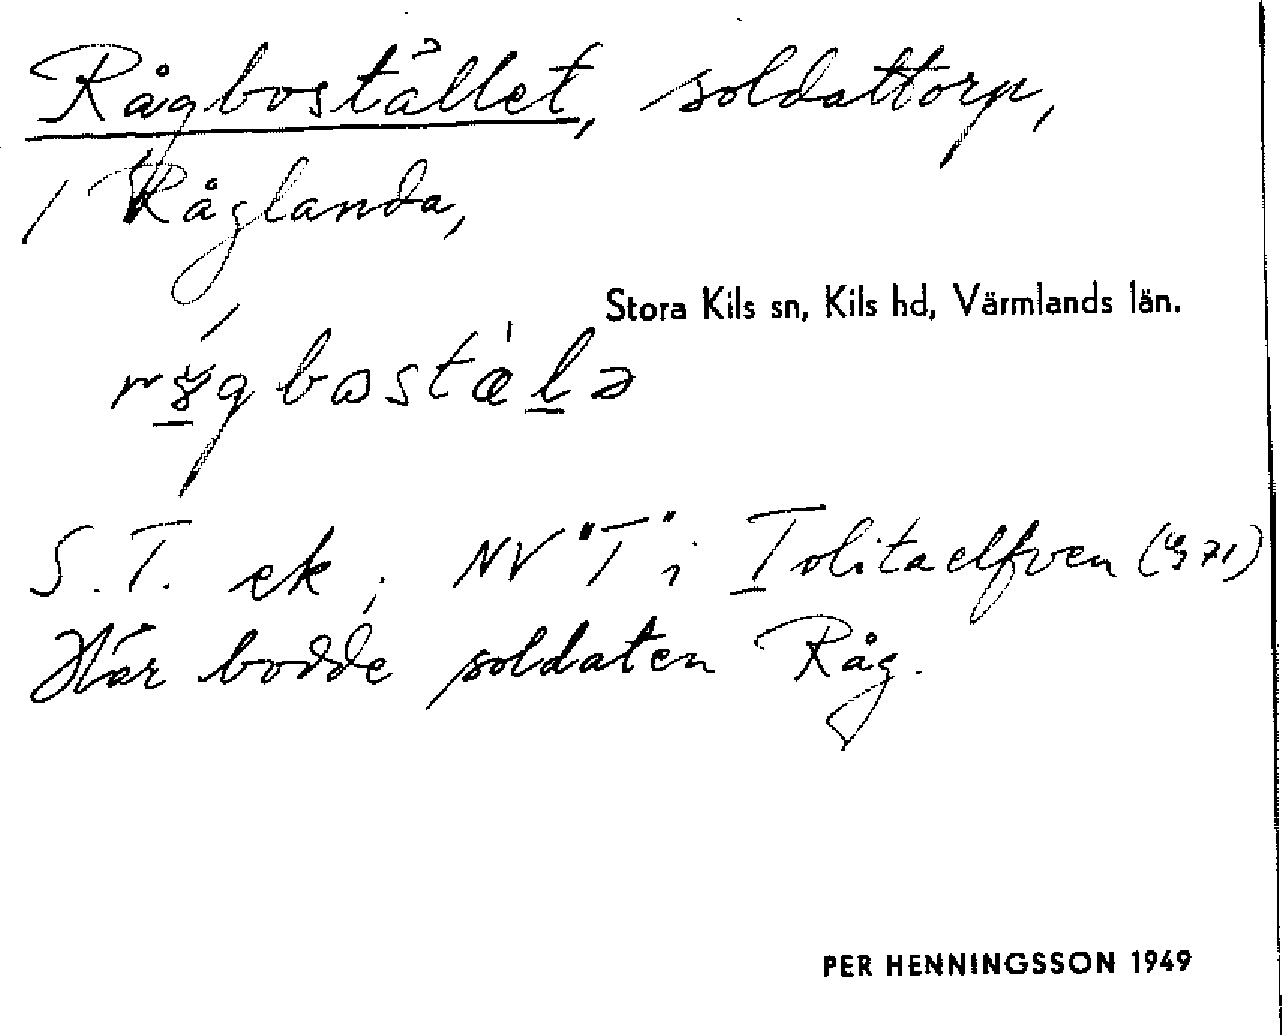 Rågbostället, soldattorp,
i Råglanda,
Stora Kils sn, Kils hd, Värmlands län.
S. T. ek; NV "T" i Tolitaelfven (971)
Här bodde soldaten Råg.
PER HENNINGSSON 1949